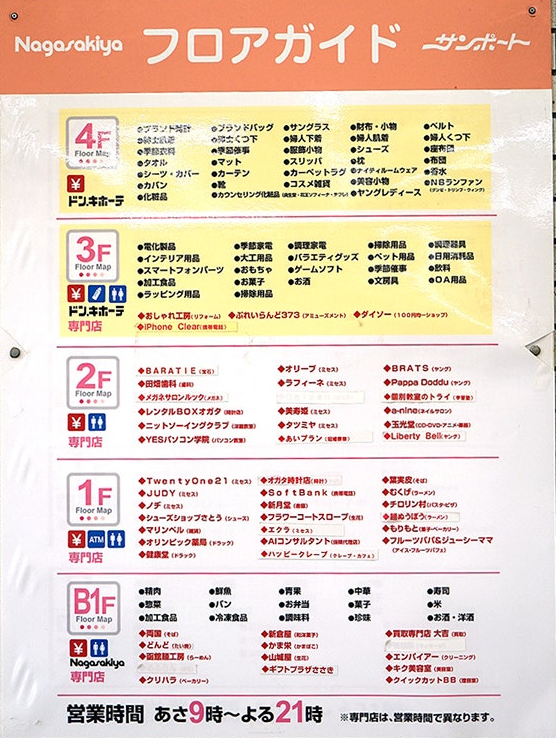 Nagasakiya フロアガイド サンポート
4F Floor Map
ドン.キホーテ
●ブランド時計 ●ブランドバッグ ●サングラス ●財布・小物 ●ベルト
●紳士肌着 ●紳士くつ下 ●婦人下着 ●婦人肌着 ●婦人くつ下
●季節衣料 ●季節催事 ●服飾小物 ●シューズ ●座布団
●タオル ●マット ●スリッパ ●枕 ●布団
●シーツ・カバー ●カーテン ●カーペットラグ ●ナイティルームウェア ●香水
●カバン ●靴 ●コスメ雑貨 ●美容小物 ●NBランファン
●化粧品 ●カウンセリング化粧品 ●ヤングレディース
3F Floor Map
ドン.キホーテ
専門店
●電化製品 ●季節家電 ●調理家電 ●掃除用品 ●調理器具
●インテリア用品 ●大工用品 ●バラエティグッズ ●ペット用品 ●日用消耗品
●スマートフォンパーツ ●おもちゃ ●ゲームソフト ●季節催事 ●飲料
●加工食品 ●お菓子 ●お酒 ●文房具 ●OA用品
●ラッピング用品 ●掃除用品
◆おしゃれ工房(リフォーム) ◆ぷれいらんど373(アミューズメント) ◆ダイソー(100円均一ショップ)
◆iPhone Clear(携帯電話)
2F Floor Map
専門店
◆BARATIE(宝石) ◆オリーブ(ミセス) ◆BRATS(ヤング)
◆田畑歯科(歯科) ◆ラフィーネ(ミセス) ◆Pappa Doddu(ヤング)
◆メガネサロンルック(メガネ) ◆個別教室のトライ(学習塾)
◆レンタルBOXオガタ(時計店) ◆美寿姫(ミセス) ◆a-nine(ネイルサロン)
◆ニットソーイングクラブ(洋裁教室) ◆タツミヤ(ミセス) ◆玉光堂(CD・DVD・アニメ・楽器)
◆YESパソコン学院(パソコン教室) ◆あいプラン(冠婚葬祭) ◆Liberty Bell(ヤング)
1F Floor Map
ATM
専門店
◆TwentyOne21(ミセス) ◆オガタ時計店(時計) ◆葉実皮(そば)
◆JUDY(ミセス) ◆SoftBank(携帯電話) ◆むくげ(ラーメン)
◆ノヂ(ミセス) ◆新月堂(書籍) ◆チロリン村(パスタ・ピザ)
◆シューズショップさとう(シューズ) ◆フラワーコートスロープ(生花) ◆麺ぬうぼう(ラーメン)
◆マリンベル(雑貨) ◆エクラ(ミセス) ◆もりもと(菓子・ベーカリー)
◆オリンピック薬局(ドラック) ◆AIコンサルタント(保険代理店) ◆フルーツパパ&ジューシーママ
◆健康堂(ドラック) ◆ハッピークレープ(クレープ・カフェ) (アイス・フルーツパフェ)
B1F Floor Map
Nagasakiya
専門店
●精肉 ●鮮魚 ●青果 ●中華 ●寿司
●惣菜 ●パン ●お弁当 ●菓子 ●米
●加工食品 ●冷凍食品 ●調味料 ●珍味 ●お酒・洋酒
◆両国(そば) ◆新倉屋(和洋菓子) ◆買取専門店 大吉(買取)
◆どんど(たい焼) ◆かま栄(かまぼこ)
◆函館麺工房(らーめん) ◆山城屋(生花) ◆エンパイアー(クリーニング)
◆ギフトプラザささき ◆キク美容室(美容室)
◆クリハラ(ベーカリー) ◆クイックカットBB(理容室)
営業時間 あさ9時〜よる21時 ※専門店は、営業時間で異なります。